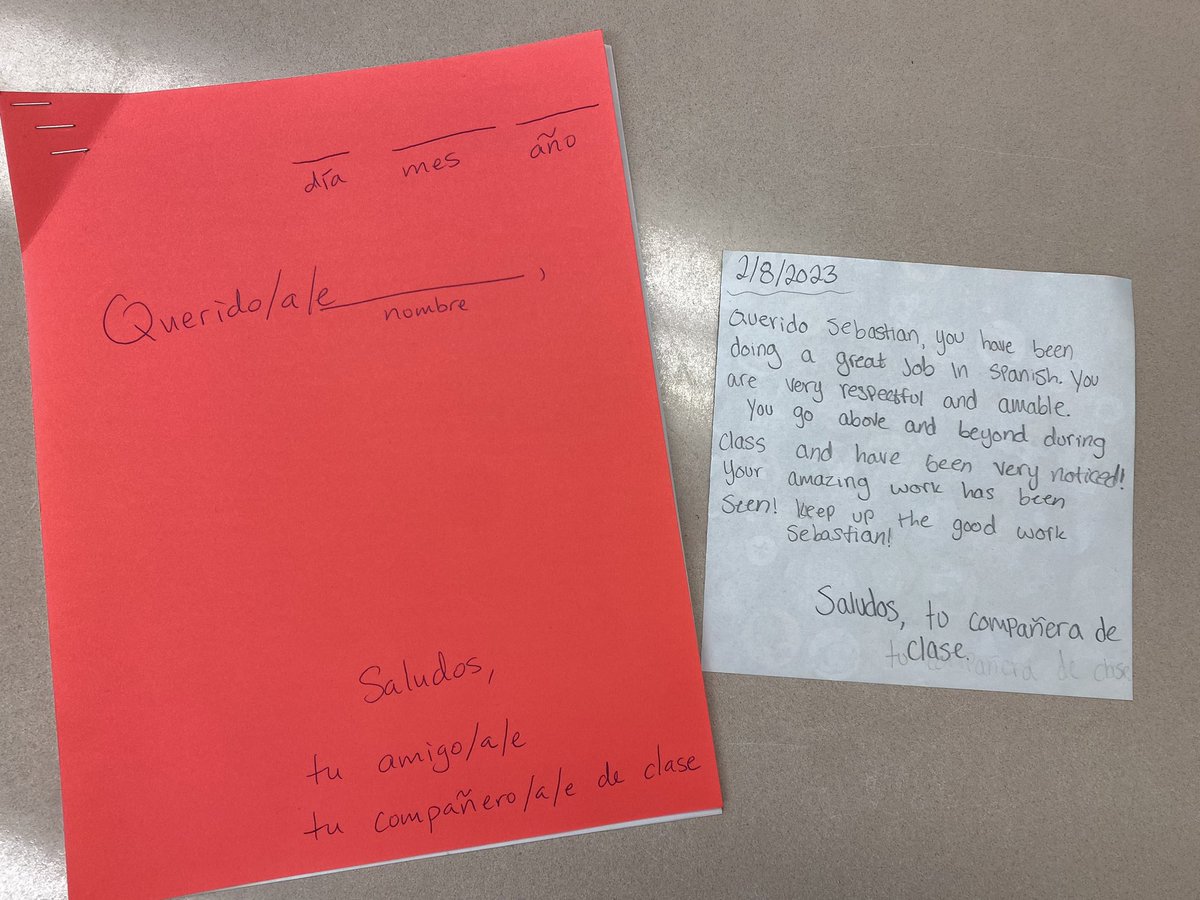 día mes año
Querido/a/e
nombre ,
Saludos,
tu amigo/a/e
tu compañero/a/e de clase
2/8/2023
Querido Sebastian, you have been
doing a great Job in Spanish. You
are very respectful and amable.
You go above and beyond during
class and have been very noticed!
Your amazing work has been
Seen! keep up the good work
Sebastian!
Saludos, tu compañera de
clase.
tu compañera de clase